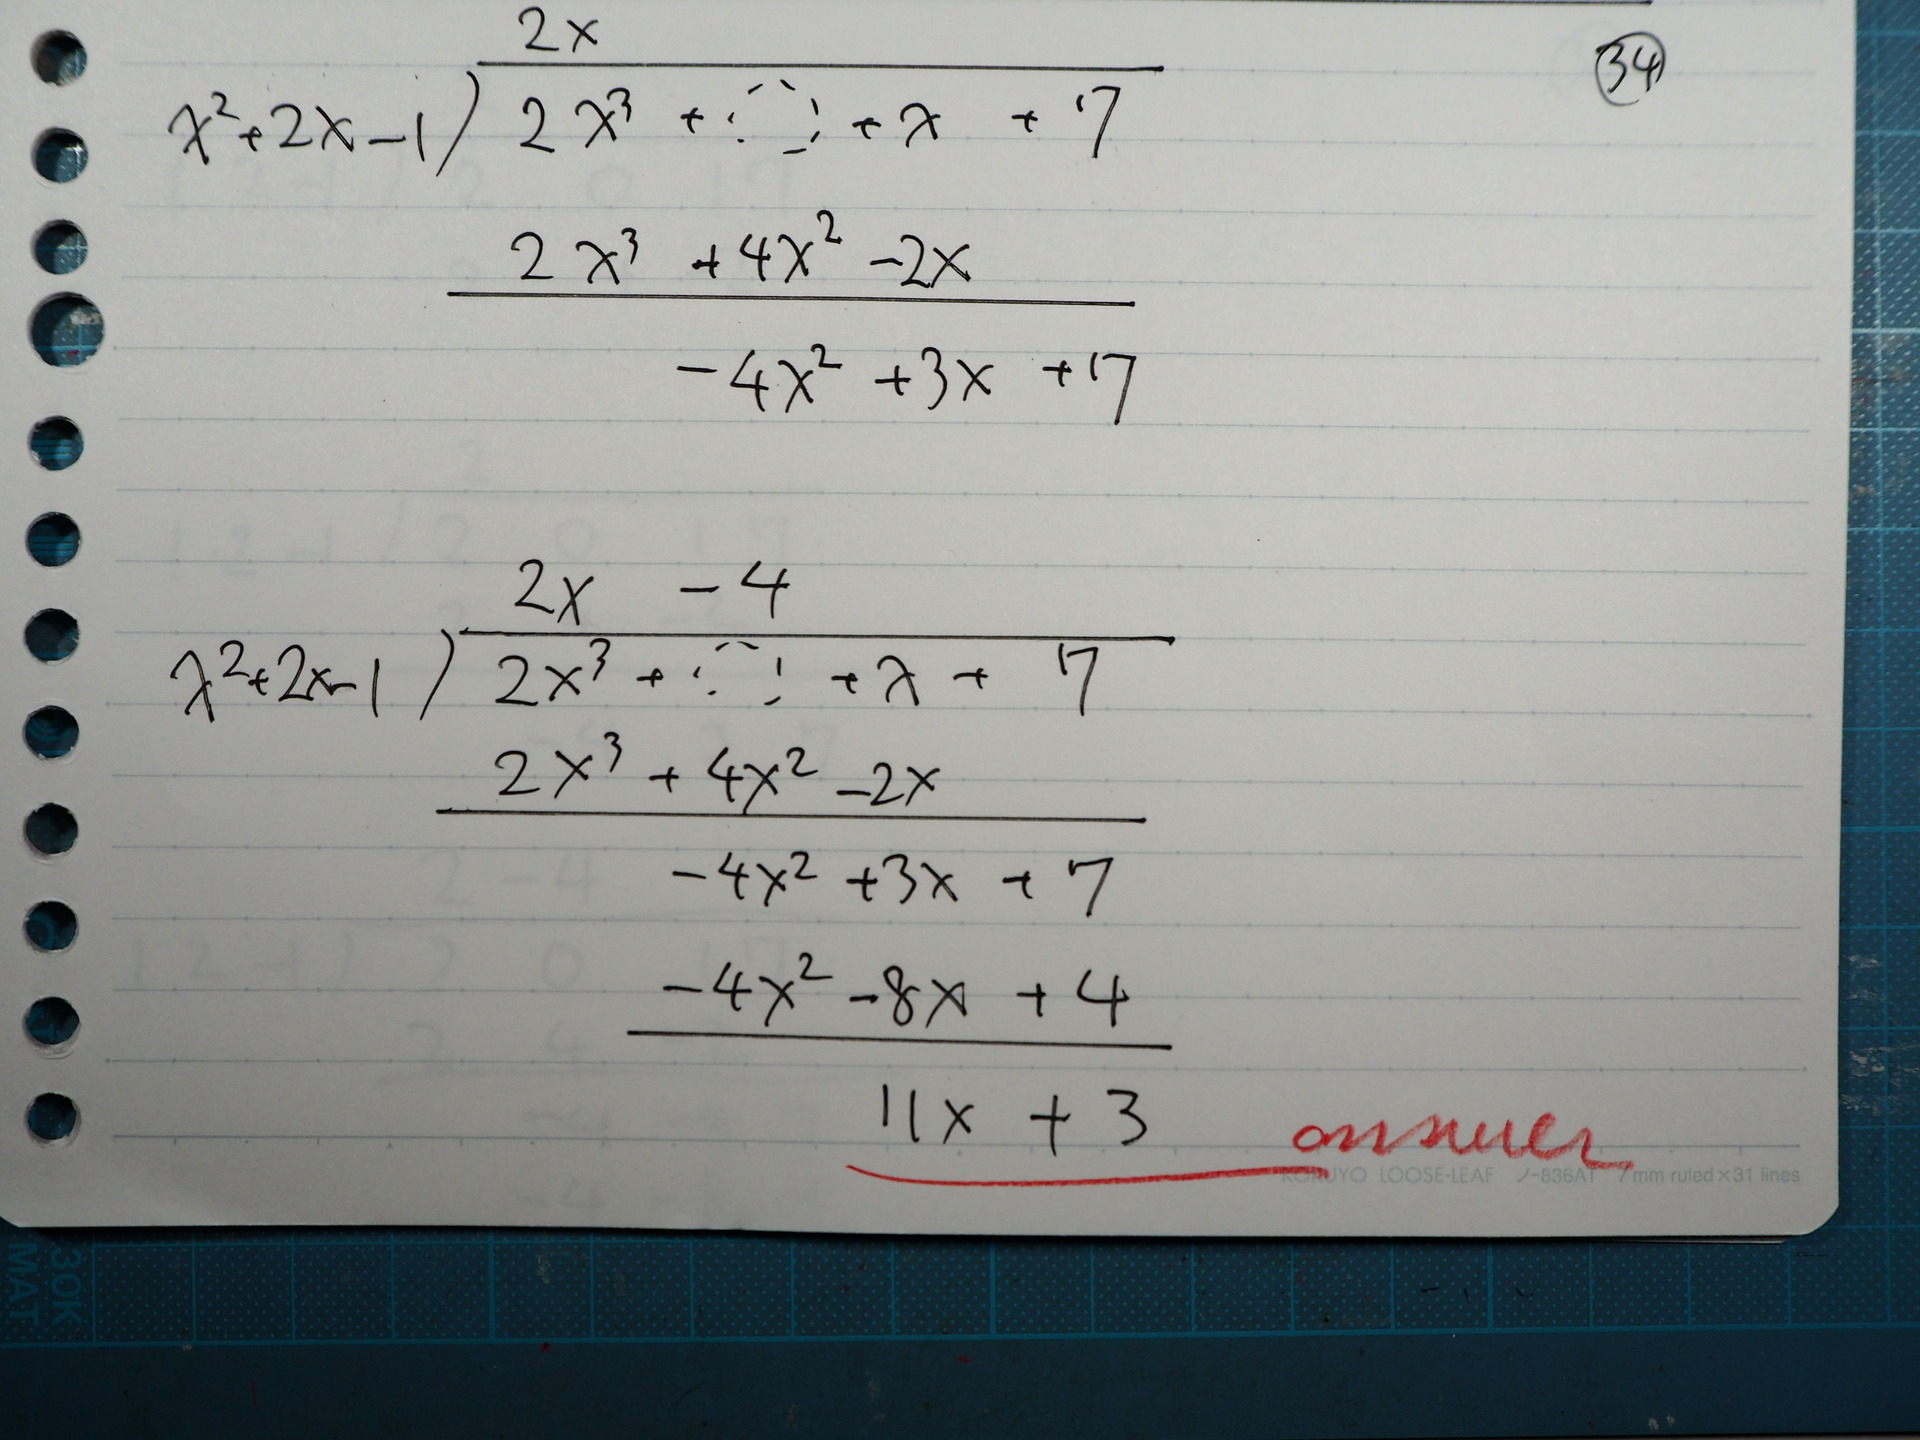 2x
34
x²+2x-1 ) 2x³ + + x + 7
2x³ +4x² -2x
-4x² +3x +7
2x -4
x²+2x-1 ) 2x³ + + x + 7
2x³ + 4x² -2x
-4x² +3x + 7
-4x² -8x + 4
11x + 3
answer
KOKUYO LOOSE-LEAF ノ-836AT 7mm ruled×31 lines
30K
MAT